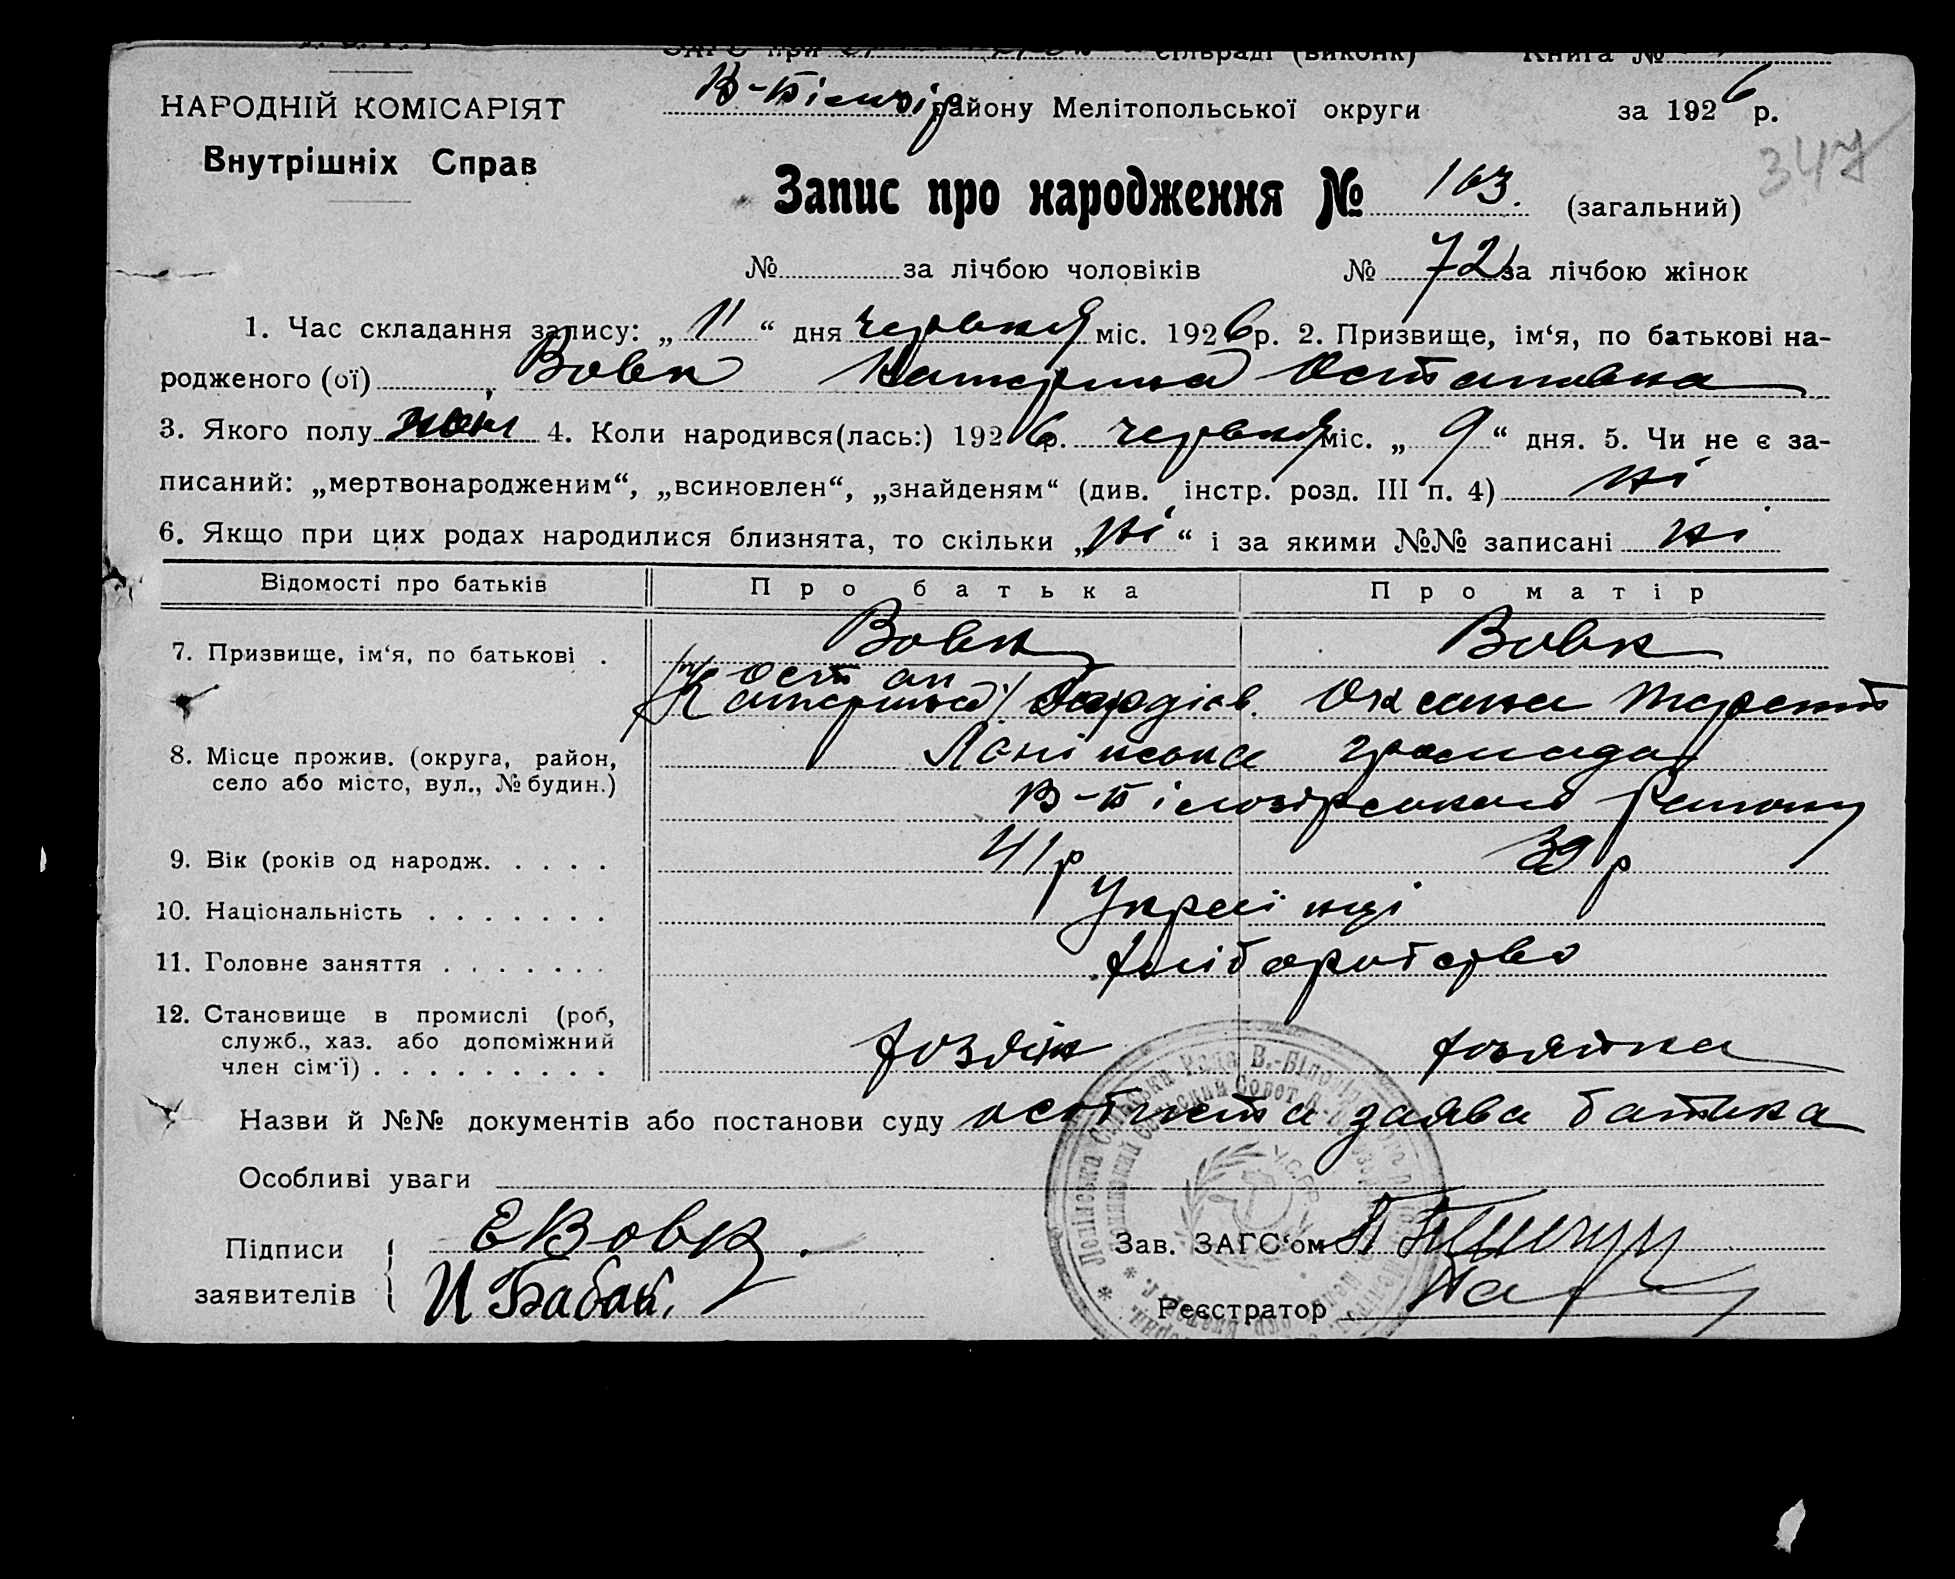 сільраді (виконк) Книга №
НАРОДНІЙ КОМІСАРІЯТ
Внутрішніх Справ
В-Білозір району Мелітопольської округи за 1926 р.
347
Запис про народження № 163. (загальний)
№ за лічбою чоловіків № 72 за лічбою жінок
1. Час складання запису: „11“ дня червня міс. 1926 р. 2. Призвище, ім‘я, по батькові на-
родженого (ої) Вовк Катерина Остаповна
3. Якого полу жін 4. Коли народився(лась:) 1926 р. червня міс. „9“ дня. 5. Чи не є за-
писаний: „мертвонародженим“, „всиновлен“, „знайденям“ (див. інстр. розд. III п. 4) ні
6. Якщо при цих родах народилися близнята, то скільки „ні“ і за якими №№ записані ні
Відомості про батьків Про батька Про матір
7. Призвище, ім‘я, по батькові . Вовк Вовк
Остап
Катерина Гордіїв. Оксана Терент
8. Місце прожив. (округа, район, село або місто, вул., № будин.) громада
В-Білозірського Району
9. Вік (років од народж. . . . . 41 р 39 р
10. Національність . . . . . . . Україн ці
11. Головне заняття . . . . . . . хліборобство
12. Становище в промислі (роб, служб., хаз. або допоміжний член сім‘ї) . . . . . . . . . хозяїн хозяйка
Назви й №№ документів або постанови суду особиста заява батька
Особливі уваги
Підписи заявителів { Е Вовк.
И Бабак.
Зав. ЗАГС‘ом
Реєстратор
У.С.Р.Р.